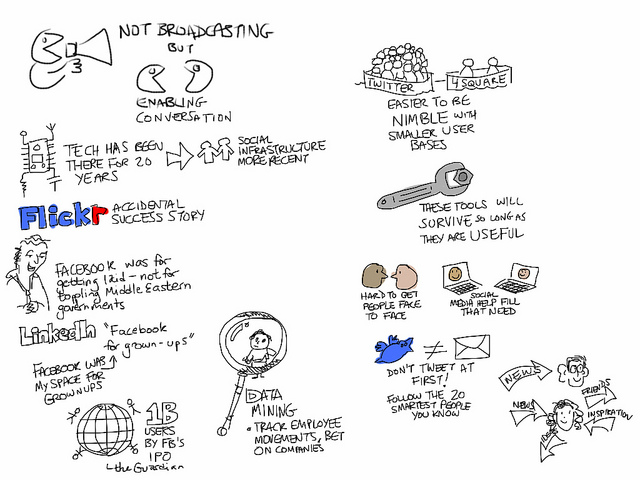 NOT BROADCASTING
BUT
ENABLING
CONVERSATION
TECH HAS BEEN
THERE FOR 20
YEARS
SOCIAL
INFRASTRUCTURE
MORE RECENT
Flickr
ACCIDENTAL
SUCCESS STORY
FACEBOOK was for
getting laid - not for
toppling Middle Eastern
governments
LinkedIn
"Facebook
for grown-ups"
FACEBOOK WAS
MY SPACE FOR
GROWNUPS
1B
USERS
BY FB'S
IPO
- the Guardian
DATA
MINING
• TRACK EMPLOYEE
MOVEMENTS, BET
ON COMPANIES
TWITTER
4SQUARE
EASIER TO BE
NIMBLE WITH
SMALLER USER
BASES
THESE TOOLS WILL
SURVIVE SO LONG AS
THEY ARE USEFUL
HARD TO GET
PEOPLE FACE
TO FACE
SOCIAL
MEDIA HELP FILL
THAT NEED
≠
DON'T TWEET AT
FIRST!
FOLLOW THE 20
SMARTEST PEOPLE
YOU KNOW
NEWS
NEWS
FRIENDS
INSPIRATION